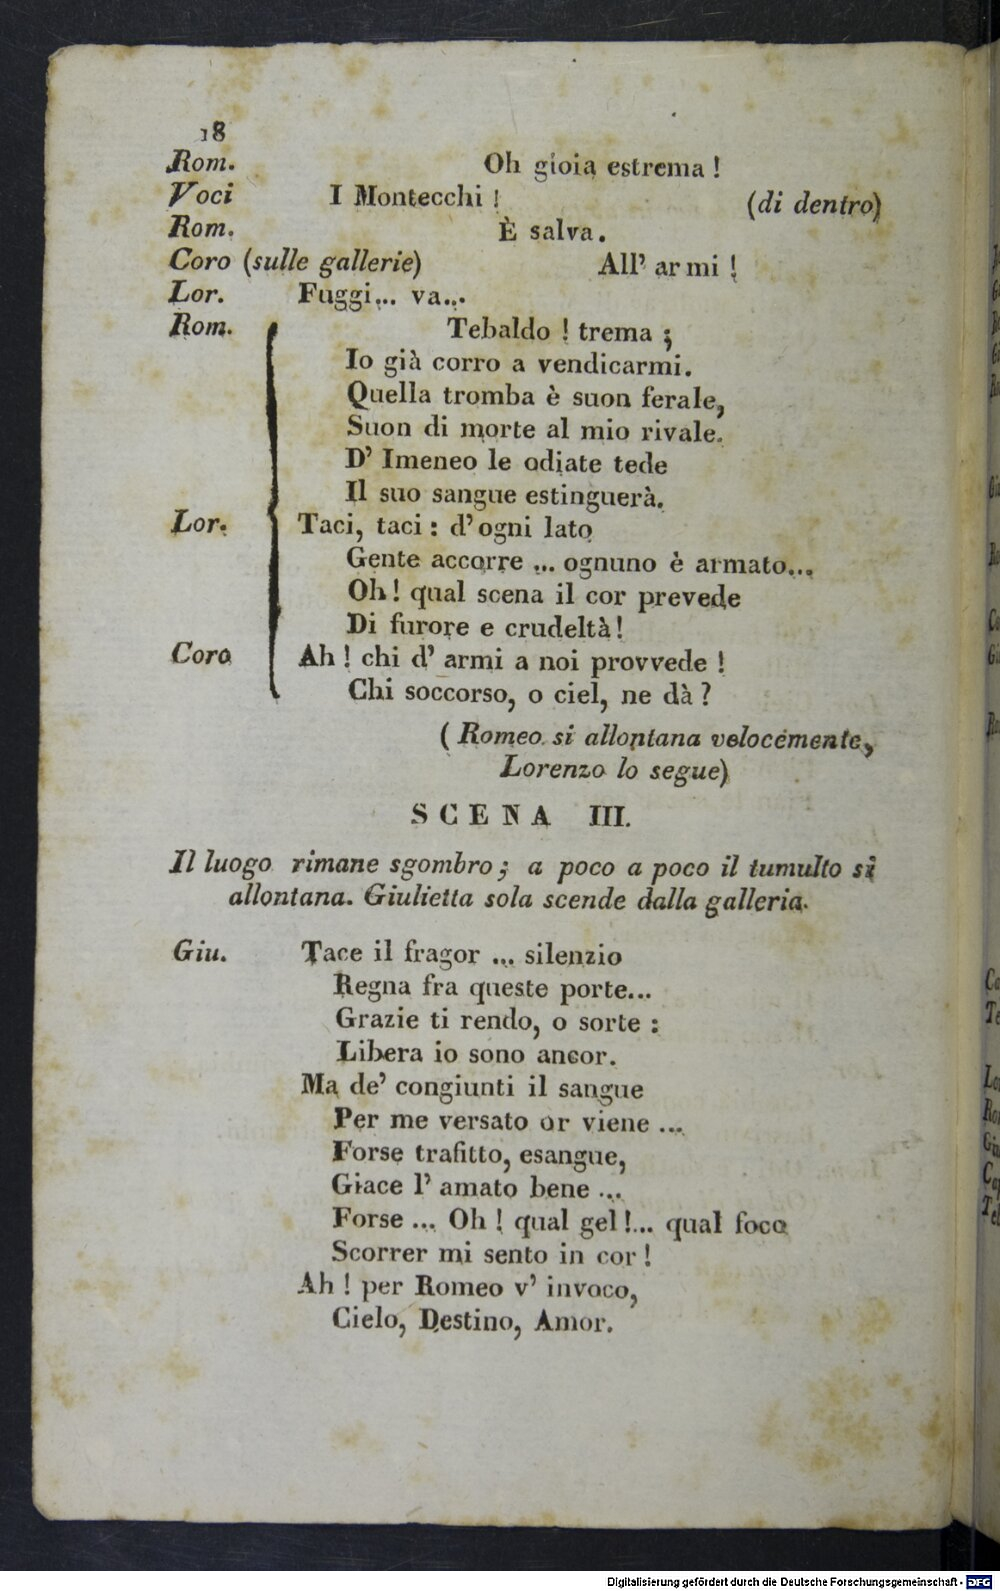 18
Rom. Oh gioia estrema !
Voci I Montecchi ! (di dentro)
Rom. È salva.
Coro (sulle gallerie) All' armi !
Lor. Fuggi... va...
Rom. Tebaldo ! trema ;
Io già corro a vendicarmi.
Quella tromba è suon ferale,
Suon di morte al mio rivale.
D' Imeneo le odiate tede
Il suo sangue estinguerà.
Lor. Taci, taci : d' ogni lato
Gente accorre ... ognuno è armato...
Oh ! qual scena il cor prevede
Di furore e crudeltà !
Coro Ah ! chi d' armi a noi provvede !
Chi soccorso, o ciel, ne dà ?
( Romeo si allontana velocemente,
Lorenzo lo segue)
SCENA III.
Il luogo rimane sgombro ; a poco a poco il tumulto si
allontana. Giulietta sola scende dalla galleria.
Giu. Tace il fragor ... silenzio
Regna fra queste porte...
Grazie ti rendo, o sorte :
Libera io sono ancor.
Ma de' congiunti il sangue
Per me versato or viene ...
Forse trafitto, esangue,
Giace l' amato bene ...
Forse ... Oh ! qual gel !... qual foco
Scorrer mi sento in cor !
Ah ! per Romeo v' invoco,
Cielo, Destino, Amor.
Digitalisierung gefördert durch die Deutsche Forschungsgemeinschaft - DFG